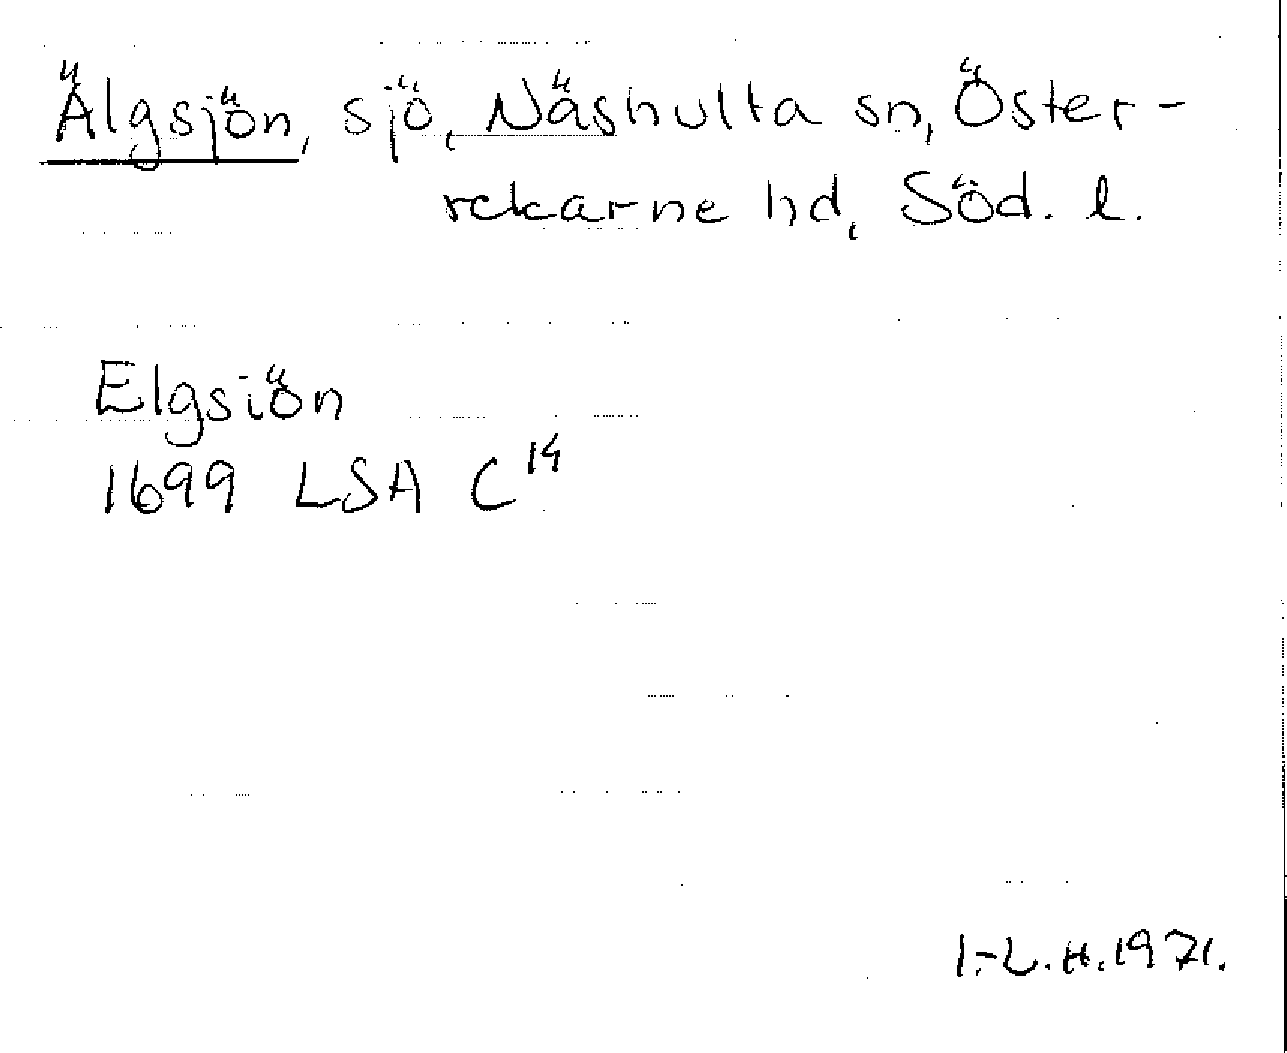 Älgsjön, sjö, Näshulta sn, Öster-
rekarne hd, Söd. l.
Elgsiön
1699 LSA C14
I.-L.H.1971.